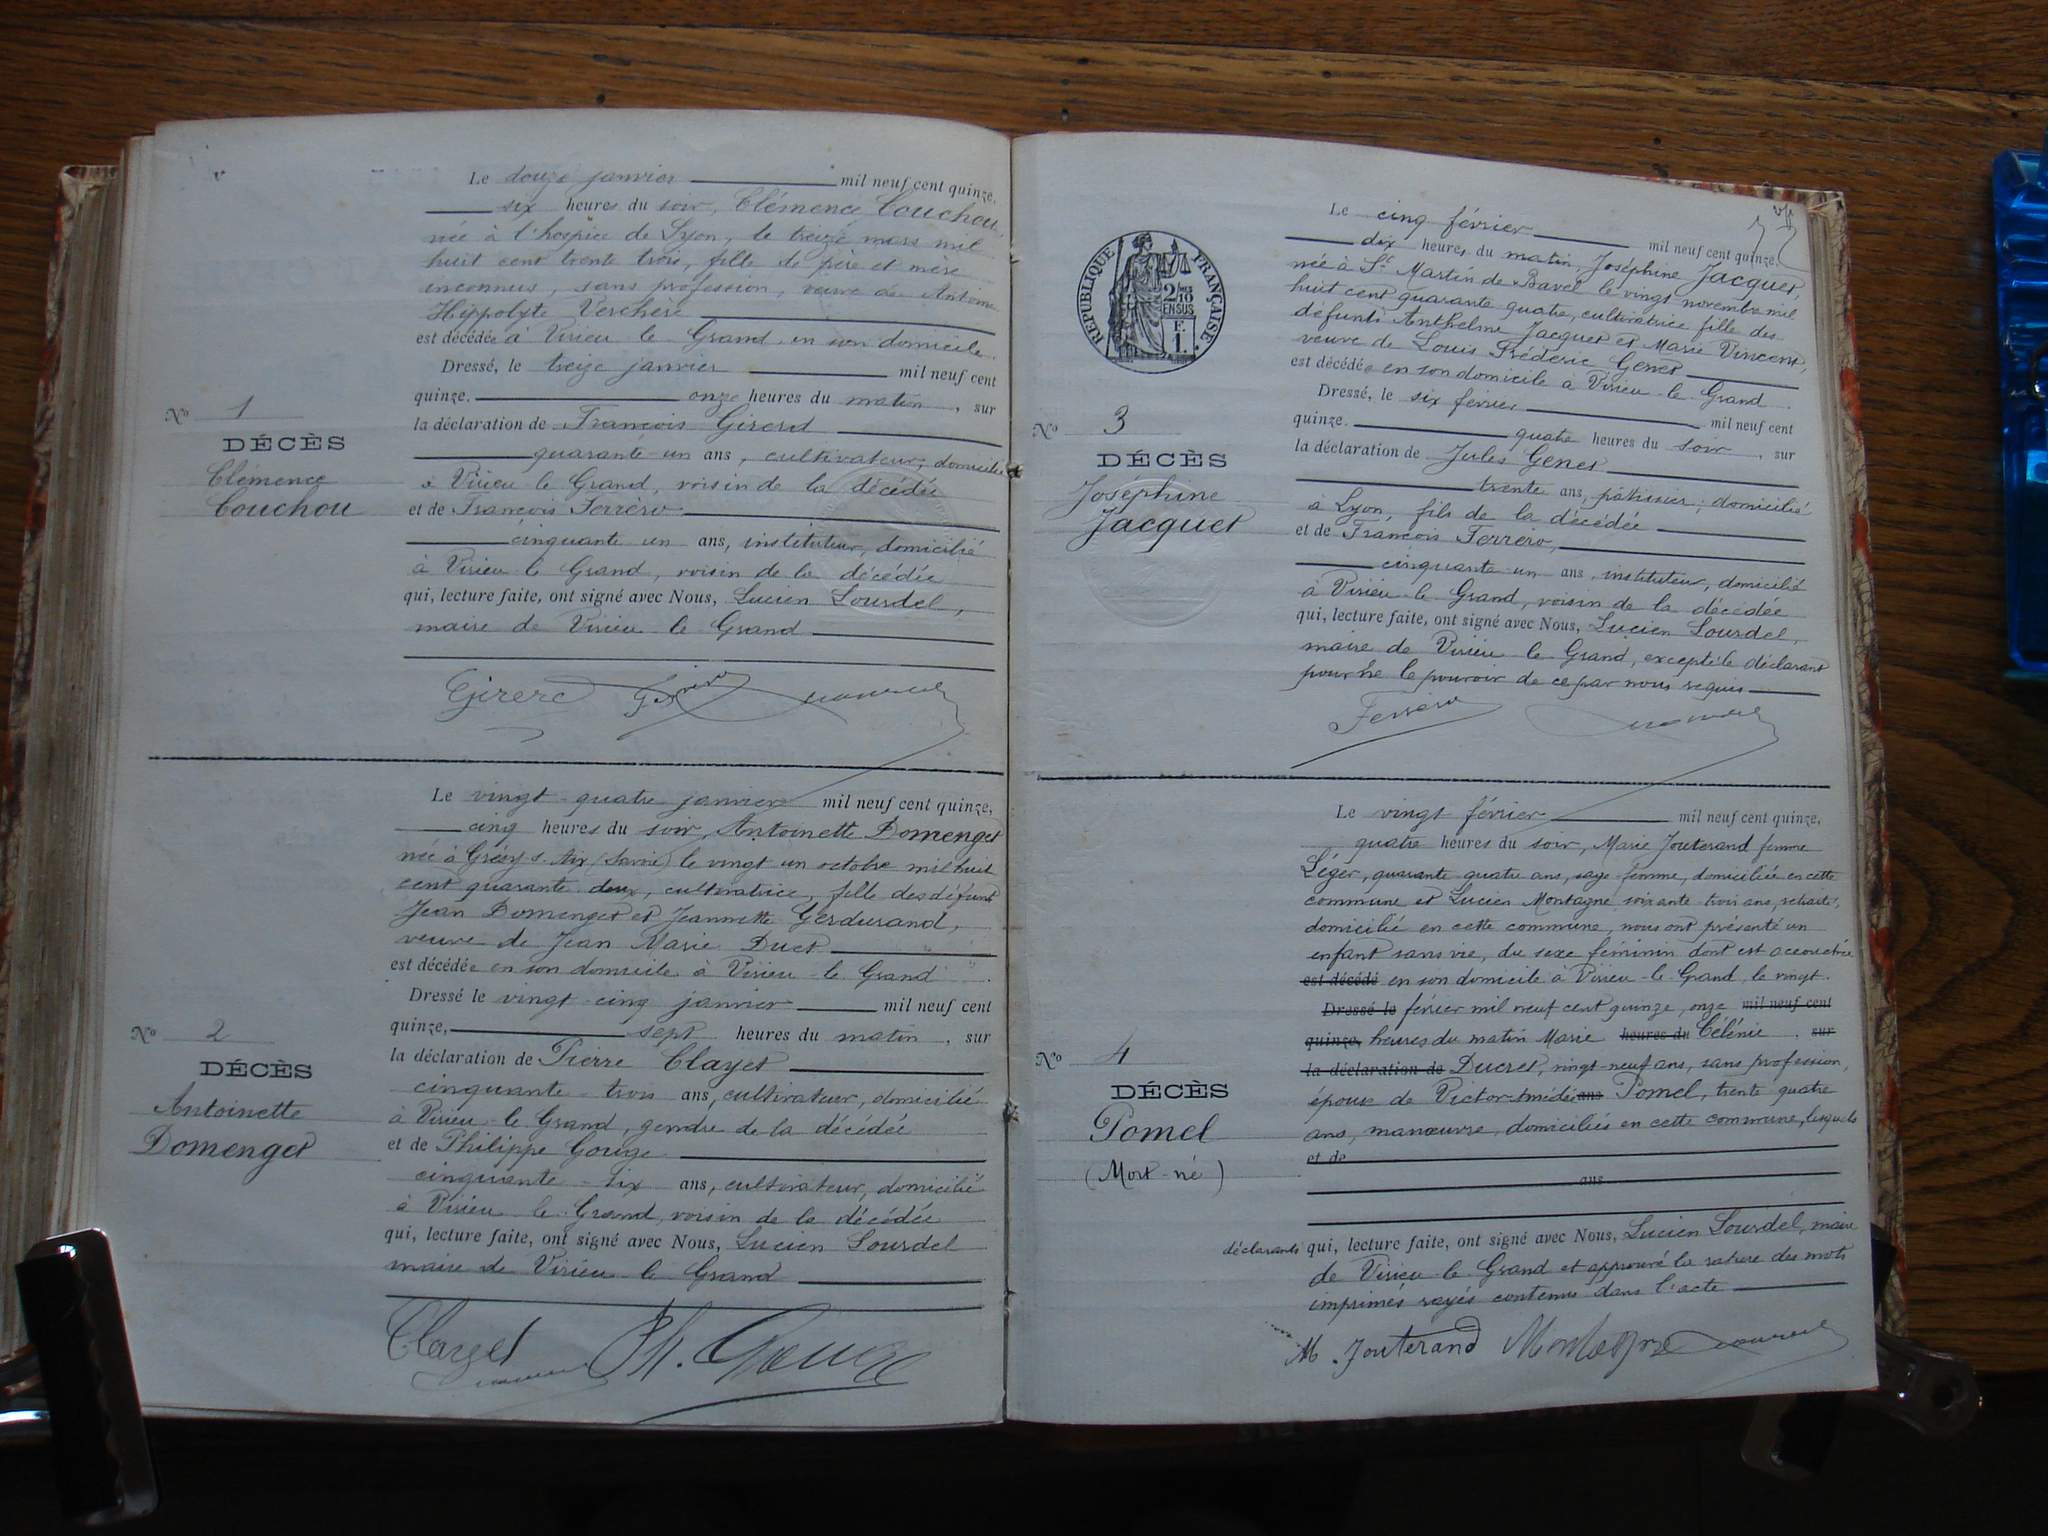 Le douze janvier mil neuf cent quinze,
six heures du soir, Clémence Couchou,
née à l'hospice de Lyon, le treize mars mil
huit cent trente trois, fille de père et mère
inconnus, sans profession, veuve de Antoine
Hippolyte Verchère
est décédée à Virieu le Grand en son domicile.
Dressé, le treize janvier mil neuf cent
quinze. onze heures du matin, sur
la déclaration de François Girerd
quarante-un ans, cultivateur, domicilié
à Virieu le Grand, voisin de la décédée
et de François Ferrero
cinquante un ans, instituteur, domicilié
à Virieu le Grand, voisin de la décédée
qui, lecture faite, ont signé avec Nous, Lucien Lourdel,
maire de Virieu le Grand
Nº 1
DÉCÈS
Clémence
Couchou
Le vingt-quatre janvier mil neuf cent quinze,
cinq heures du soir, Antoinette Domenget
née à Grésy s. Aix (Savoie) le vingt un octobre mil huit
cent quarante deux, cultivatrice, fille des défunts
Jean Domenget et Jeannette Gerdurand,
veuve de Jean Marie Duct
est décédée en son domicile à Virieu-le-Grand
Dressé le vingt-cinq janvier mil neuf cent
quinze, sept heures du matin, sur
la déclaration de Pierre Clayet
cinquante-trois ans, cultivateur, domicilié
à Virieu-le-Grand, gendre de la décédée
et de Philippe Gouge
cinquante-six ans, cultivateur, domicilié
à Virieu le Grand, voisin de la décédée
qui, lecture faite, ont signé avec Nous, Lucien Lourdel
maire de Virieu-le-Grand
Clayet Ph. Gouge
Nº 2
DÉCÈS
Antoinette
Domenget
RÉPUBLIQUE FRANÇAISE
2/10 EN SUS
F. 1.
Le cinq février mil neuf cent quinze,
dix heures du matin, Joséphine Jacquet,
née à St Martin de Bavel le vingt novembre mil
huit cent quarante quatre, cultivatrice fille des
défunts Anthelme Jacquet et Marie Vincent,
veuve de Louis Fréderic Genet
est décédée en son domicile à Virieu-le-Grand
Dressé, le six fevrier mil neuf cent
quinze. quatre heures du soir, sur
la déclaration de Jules Genet
trente ans, pâtissier, domicilié
à Lyon, fils de la décédée
et de François Ferrero,
cinquante-un ans, instituteur, domicilié
à Virieu-le-Grand, voisin de la décédée
qui, lecture faite, ont signé avec Nous, Lucien Lourdel,
maire de Virieu le Grand, excepté le déclarant
pour ne le pouvoir de ce par nous requis
Ferrero
Nº 3
DÉCÈS
Joséphine
Jacquet
Le vingt février mil neuf cent quinze,
quatre heures du soir, Marie Jouterand femme
Léger, quarante-quatre ans, sage-femme, domiciliée en cette
commune et Lucien Montagne soixante-trois ans, retraité,
domicilié en cette commune, nous ont présenté un
enfant sans vie, du sexe féminin dont est accouchée
est décédé en son domicile à Virieu-le-Grand, le vingt
Dressé le février mil neuf cent quinze, onze mil neuf cent
quinze, heures du matin Marie heures du Célénie, sur
la déclaration de Ducret, vingt-neuf ans, sans profession,
épouse de Victor-Amédée ans Pomel, trente quatre
ans, manœuvre, domiciliés en cette commune, lesquels
et de
ans
déclarants qui, lecture faite, ont signé avec Nous, Lucien Lourdel, maire
de Virieu-le-Grand et approuvé la rature des mots
imprimés rayés contenus dans l'acte
M. Jouterand Montagne
Nº 4
DÉCÈS
Pomel
(Mort-né)